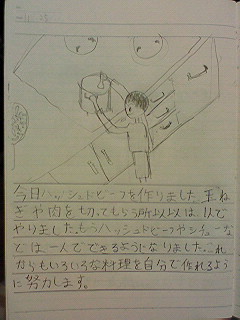 今日ハッシュドビーフを作りました。玉ね
ぎや肉を切ってもらう所以外は1人で
やりました。もうハッシュドビーフやシチューな
どは一人でできるようになりました。これ
からもいろいろな料理を自分で作れるよう
に努力します。